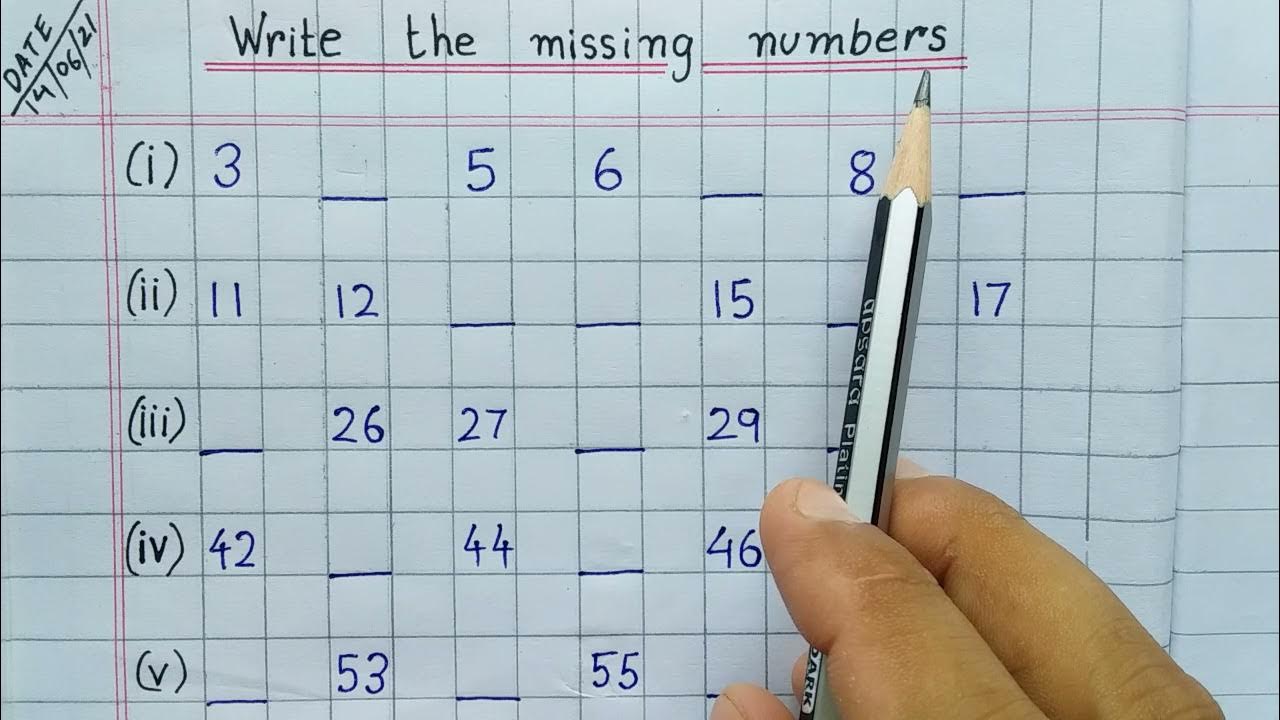 DATE
14/06/21
Write the missing numbers
(i) 3 __ 5 6 __ 8 __
(ii) 11 12 __ __ 15 __ 17
(iii) __ 26 27 __ 29 __
(iv) 42 __ 44 __ 46
(v) __ 53 __ 55 __
apsara platin
DARK